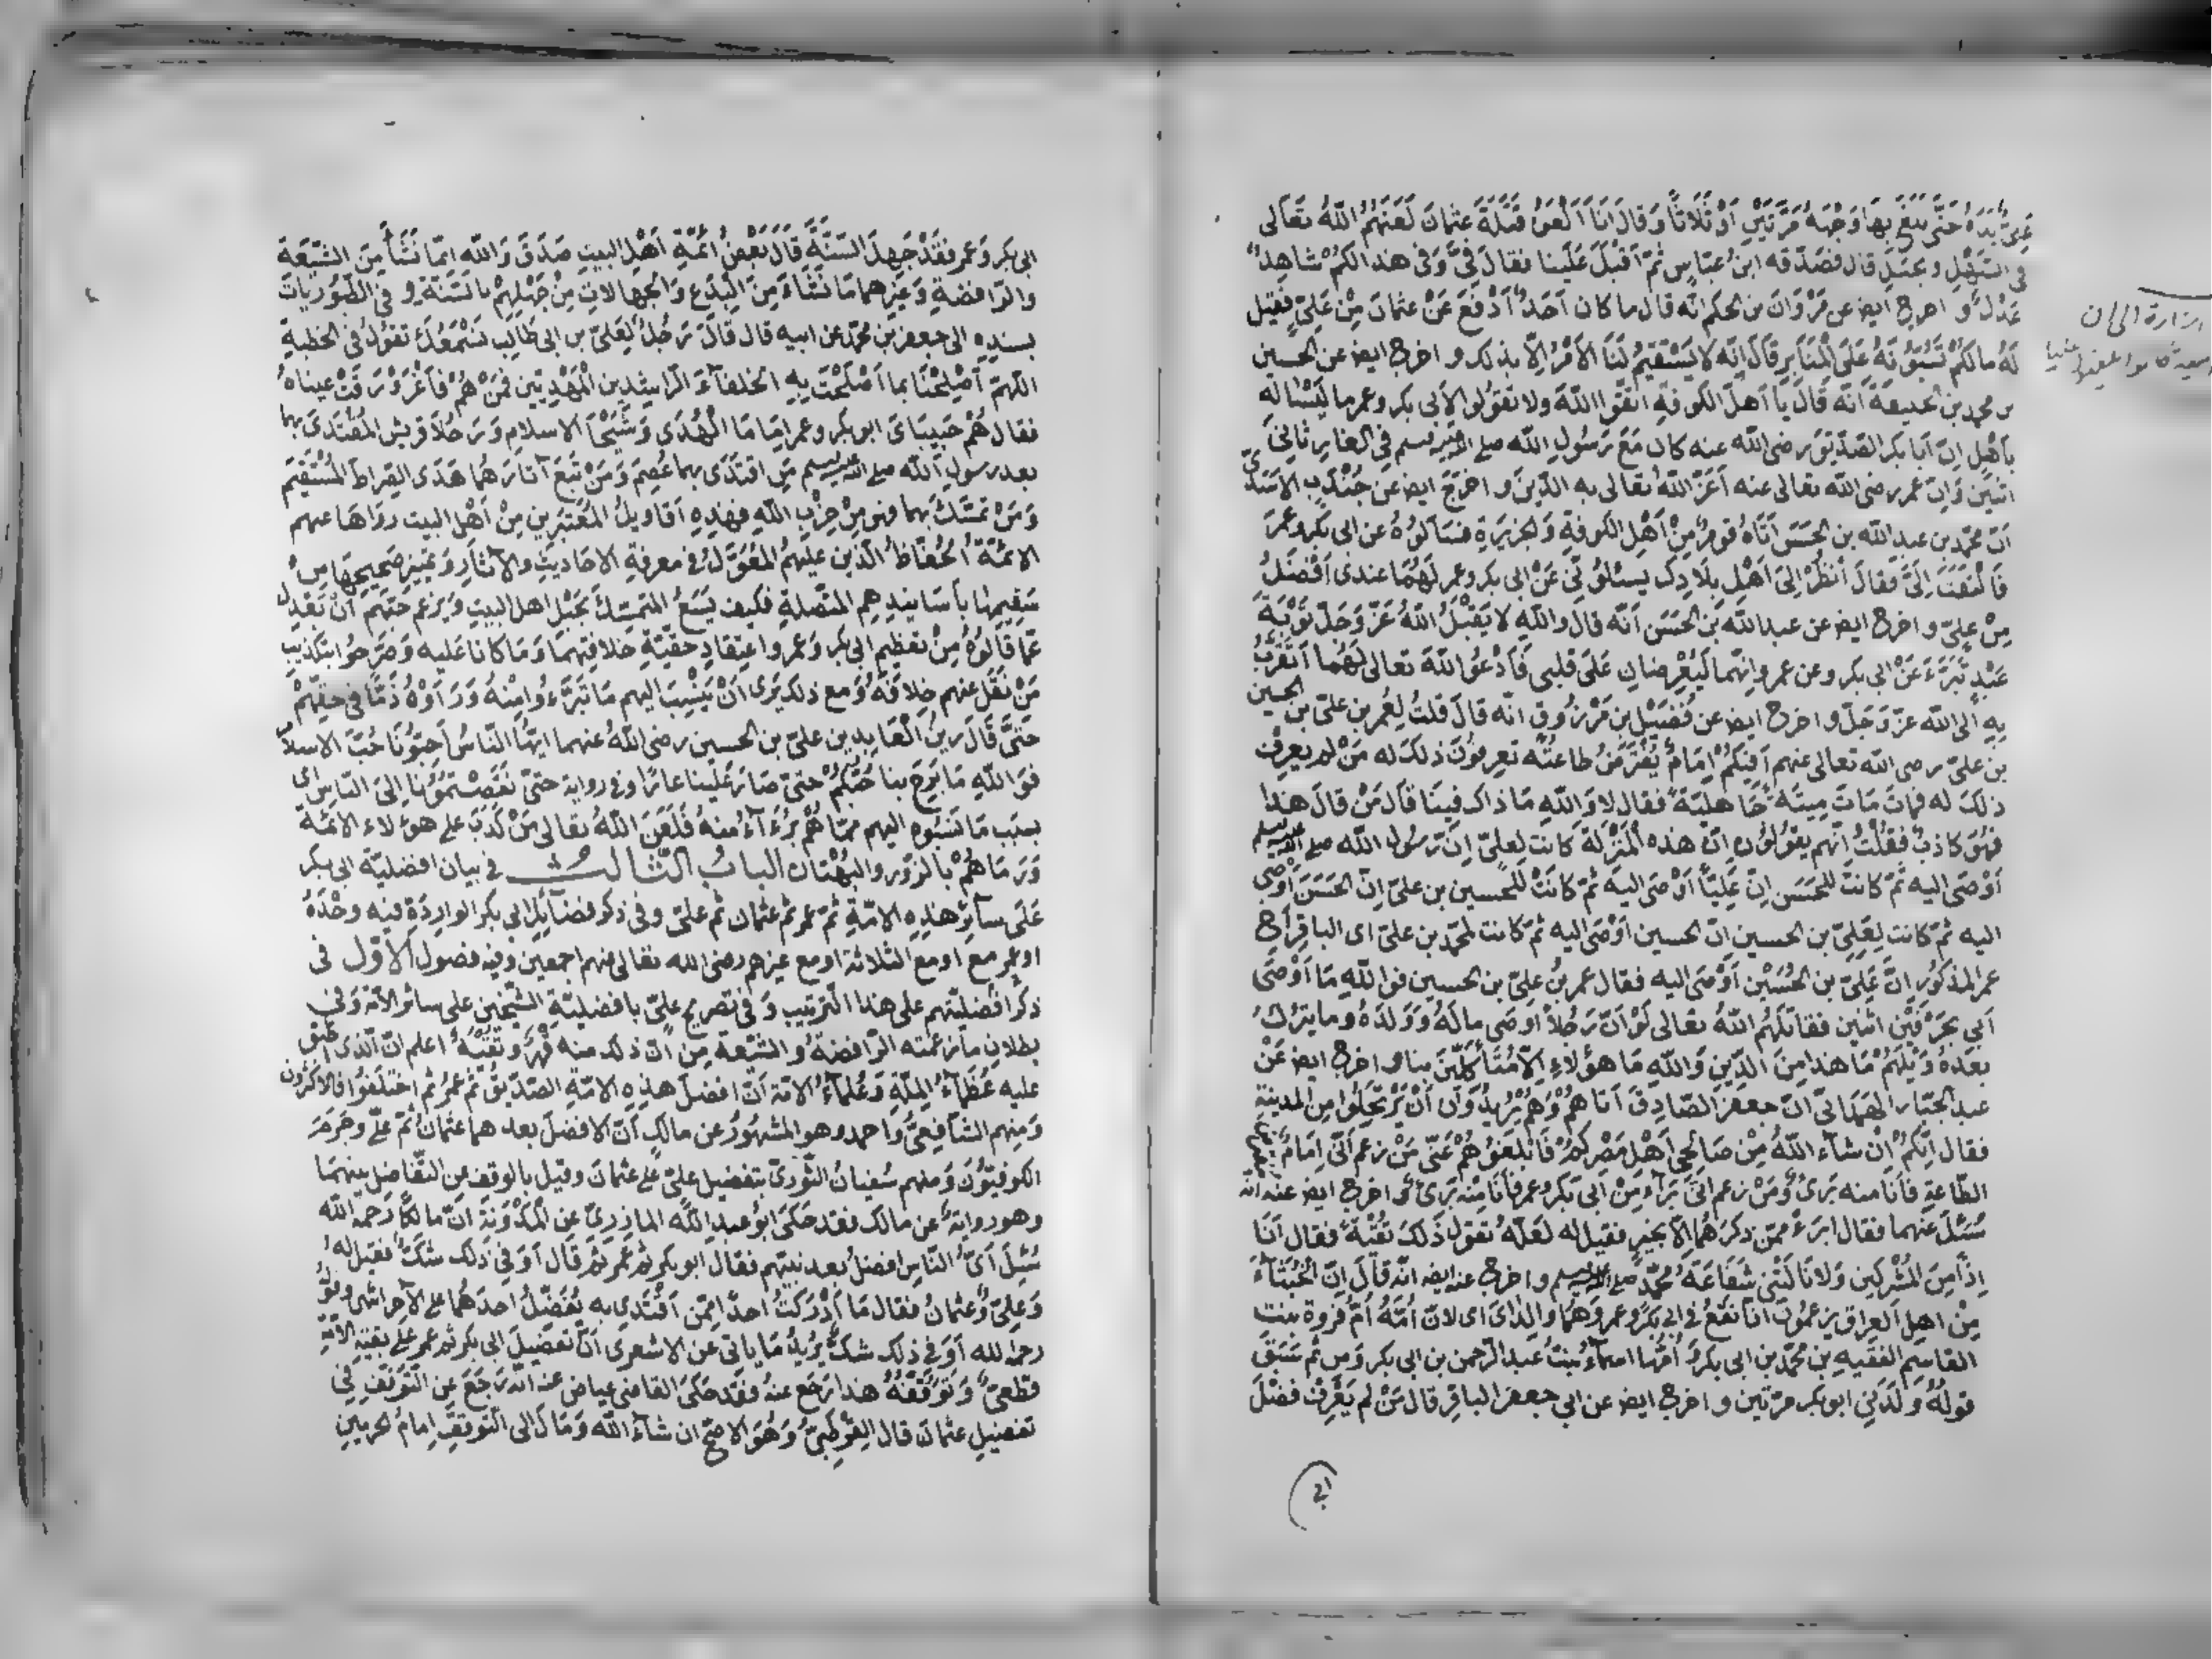 عليّ يَدَهُ حَتَّى بَلَغَ بِهَا وَجْهَهُ مَرَّتَيْنِ اَوْ ثَلَاثًا وَقَالَ اَنَا اَلْعَنُ قَتَلَةَ عثمانَ لَعَنَهُمُ اللّٰهُ تَعَالَى
فى السَّهْلِ وَالجَبَلِ قال فَصَدَّقه ابنُ عبّاسٍ ثمّ اَقْبَلَ عَلَينا فقالَ فِىَّ وَفى هذا لكُم شاهِدَا
عَدْلٍ وَاخرج ايض عن مَرْوَانَ بن الحكم انّه قال ما كان اَحَدٌ اَدْفَعَ عَنْ عثمانَ مِنْ عَلِىّ فقيل
لَهُ مالَكُمْ تَسُبّوُنَهُ عَلَى الْمَنَابِرِ قَالَ اِنّه لا يَسْتَقيمُ لَنَا الاَمْرُ اِلّا بذلك و اخرج ايض عن الحسين
بن محمد بن الحنيفة اَنّه قَالَ يَا اَهلَ الكوفةِ اتّقُوا اللّٰهَ ولا تقوُلوا لاَبى بكر وعمر ما لَيْسْا لهُ
بِاَهْلٍ اِنّ اَبَا بكر الصّدّيقَ رضى اللّٰه عنه كان مَعَ رَسُولِ اللّٰه صلى اللّٰه عليه وسلم فى الغارِ ثانِىَ
اثنين وَاِنّ عمر رضى اللّٰه تعالى عنه اَعَزّ اللّٰهُ تعالى به الدّينَ و اخرَجَ ايض عن جُنْدَبِ الاَسَدىّ
اَنّ محمّد بن عبدِ اللّٰه بن الحَسَن اَتَاهُ قومٌ مِنْ اَهْلِ الكوفةِ وَالجزيرَةِ فسَاَلوُهُ عن ابى بكر وعمرَ
فَالْتَفَتَ اِلَىَّ فَقالَ اُنْظُرْ اِلىَ اَهْلِ بِلَادِكَ يسئلوُنّى عَنْ ابى بكر وعمر لَهُمَا عندى اَفْضَلُ
مِنْ علىّ و اخرج ايض عن عبد اللّٰه بن الحَسَن اَنّه قال واللّٰهِ لا يَقْبَلُ اللّٰهُ عَزّ وَجَلّ تَوْبَةَ
عَبْدٍ تَبَرَّءَ عَنْ ابى بكر وعن عمر وانّهما لَيُعْرضانِ عَلَى قلبى فَاَدْعُو اللّٰهَ تعالى لَهُما اَتَقَرَّبُ
بِهِ الى اللّٰه عزّ وَجَلّ و اخرج ايض عن فُضَيْلِ بن مَرْزُوقٍ انّه قالَ قلتُ لِعُمر بن علىّ بن الحسين
بن علىّ رضى اللّٰه تعالى عنهم اَفِيْكُمْ اِمَامٌ يُفْتَرَضُ طاعتُهُ تَعرِفوُنَ ذلكَ له مَنْ لم يعرِفْ
ذلكَ له فمَاتَ مَاتَ مِيتَةً جَاهليّةً فقال لا وَاللّٰهِ مَا ذاك فِينَا قالَ مَنْ قالَ هذا
فهُوَ كاذبٌ فَقُلْتُ اِنّهم يقوُلوُن اِنّ هذه الْمَنْزِلةَ كانت لِعلىٍّ اِنّ رسُولَ اللّٰه صلى اللّٰه عليه وسلم
اَوْصَى اليه ثمّ كانتْ للحَسَن اِنّ عَلِيّاً اَوْصَى اليه ثمّ كانَتْ للحُسين بن علىّ اِنّ الحَسَنَ اَوْصَى
اليه ثمّ كانت لِعَلِىّ بن الحسين اِنّ الحسين اَوْصَى اليه ثمّ كانت لمحمّد بن علىّ اى الباقِر اَخ
عمر المذكوُر اِنَّ عَلِىّ بن الحُسَيْن اَوْصَى اليه فقال عمر بنُ علىّ بن الحسين فو اللّٰهِ مَا اَوْصَى
اَبى بحَرْفَيْنِ اثنين فقاتَلَهُم اللّٰهُ تعالى لَوْ اَنّ رَجُلاً اَوصَى مالَهُ وَوَلَدَهُ وما يترُكُ
بعدَهُ وَيْلَهُمْ مَا هذا مِنَ الدّينِ وَاللّٰهِ مَا هؤلاءِ اِلّا مُتَأكّلينَ بنا و اخرج ايض عَنْ
عبد الجبّار الهَمدَانىّ اَنّ جعفرَ الصّادِقَ اَتَاهُمْ وَهُمْ يُريدوُنَ اَنْ يَرْتَحِلُوا مِن المدينةِ
فقال اِنّكُمْ اِنْ شاء اللّٰهُ مِنْ صَالحِى اَهْلِ مِصْرِكُمْ فَاَبْلِغوُهُمْ عَنّى مَنْ زعم اَنّى اِمَامٌ
الطّاعةِ فَاَنَا منه بَرىٌ وَمَنْ زعم اَنّى بَرَاءٌ مِنْ اَبى بكر وعمر فَاَنَا مِنْهُ بَرىٌ و اخرج ايض عنه اَنّه
سُئلَ عنهما فقال اَبرَءُ ممّن ذكرَهُما اِلّا بخيرٍ فقيل له لَعَلّه تقول ذلكَ تُقْيَةً فقال اَنَا
اِذاً مِنَ المُشْركينَ وَلَا نَالَتْنى شَفَاعَةُ مُحمّدٍ صلى اللّٰه عليه وسلم و اخرج عنه ايض انّه قالَ اِنّ الخُبَثَاءَ
مِنْ اهلِ العِراقِ يزعُموُنَ اَنّا نَقَعُ فى ابى بكر وعمر وَهُمَا والِدَاىَ اى لاَنّ اُمّهُ اُمّ فروة بنت
القاسِم الفقيهِ بن محمّد بن ابى بكر وَاُمّها اسماءُ بنتُ عبد الرّحمن بن ابى بكر وَمن ثم سَبَقَ
قولهُ وَلَدَنِى ابو بكر مرّتين و اخرج ايض عن ابى جعفر الباقرِ قال مَنْ لم يَعْرِفْ فضْلَ
ابى بكر وَعمر فقَدْ جَهِلَ السّنّةَ قَالَ بَعْضُ ائمّةِ اَهْلِ البيتِ صَدَقَ وَاللّٰه انّما نَشَأَ مِنَ الشّيْعَةِ
والرّافضةِ وَغيرِهما مَا نَشَاءَ مِنَ البِدَعِ وَالجَهالاتِ مِنْ جَهْلِهِمْ بِالسّنّةِ وفى الطّيوُريّاتِ
بسندِهِ الى جعفر بن محمّد عن ابيه قال قال رَجُلٌ لِعَلىّ بن ابى طالِبٍ نَسْمَعُكَ تقوُلُ فى الخطبةِ
اللّهمّ اَصْلِحْنَا بما اَصْلَحْتَ بِهِ الخلفاءَ الرّاشدِين الْمَهْدِيّين فمَنْ هُمْ فَاغْرَوْرَقَتْ عيناهُ
فقال هُمْ حَبِيبَاىَ ابو بكر وعمر اِمَامَا الْهُدَى وَشَيْخَا الاسلامِ وَرَجُلَا قريش المُقْتَدَى بهما
بعد رسولِ اللّٰه صلى اللّٰه عليه وسلم مَنِ اقتدَى بهما عُصِمَ وَمَنْ تبعَ آثارَهُما هُدَى الصّراطَ المُسْتَقِيمَ
وَمَنْ تمسّكَ بهما فهو مِنْ حِزْبِ اللّٰهِ فهذِهِ اَقاويلُ المُعْتبَرين مِنْ اَهْلِ البيت رواهَا عنهم
الائمّةُ الحُفّاظُ الّذين عليهمُ المُعَوَّلُ فى معرفةِ الاحَاديثِ والآثارِ وَتمْييزِ صَحيحِهَا مِنْ
سَقِيمِهَا باَسَانِيدِهِمِ المتّصلةِ فكيف يَسَعُ المتمسّكَ بحَبْلِ اهل البيتِ وَيَزعم حُبّهم اَنْ يَعْدِلَ
عمّا قالوُهُ مِنْ تعظيمِ ابى بكر وَعمر واعتِقادِ حقّيّةِ خلافتِهما وَمَا كانا عَليه وَصَرّحُوا بتكذيبِ
مَنْ نَقَلَ عنهم خِلافَهُ وَمع ذلك يَرى اَنْ يَنْسِبَ اليهم مَا تَبَرّءُوا مِنْهُ وَرَاَوْهُ ذمًّا فى حقّهمْ
حَتّى قَالَ زينُ الْعَابدين علىّ بن الحُسين رضى اللّٰهُ عنهما ايّها النّاسُ اَحِبّوُنَا حُبّ الاسلا
فوَاللّٰهِ مَا بَرِحَ بنا حُبّكُمْ حتّى صَارَ عَلَينا عارًا وفى روايةٍ حتّى نَقّصْتمُوُنا اِلىَ النّاسِ اى
بسبب مَا نَسَبُوه اليهم ممّا هُمْ بُرَءاءُ منهُ فَلَعَنَ اللّٰهُ تعالى مَنْ كَذَبَ على هؤلاء الائمّةِ
وَرَمَاهُمْ بالزّورِ والبُهْتان البابُ الثّالثُ فى بيان افضليّة ابى بكر
عَلَى سآئِر هذِهِ الامّةِ ثمّ عمر ثم عثمان ثم علىّ وفى ذكر فضآئلِ ابى بكر الوارِدَةِ فيه وحْدَهُ
او عمر معَ او مع الثلاثة او مع غيرهم رضى اللّه تعالى عنهم اجمعين وفيه فصول الاوّل فى
ذكر افضليّتهم على هذا التّرتيب وَفى تصريحِ علىّ بافضليّةِ الشّيخين على سائر الامّة وَفى
بطلانِ ما زعمته الرّافضةُ والشّيْعة مِنْ اَنّ ذلك منه قَهْرٌ وَتُقْيَةٌ اعلم اَنّ الّذى اَطْبَقَ
عليه عُظَماءُ المِلّةِ وَعُلماءُ الامّة اَنّ افضلَ هذِهِ الامّةِ الصّدّيقُ ثم عمرُ ثم اختَلفوُا فالاكثرون
وَمنهم الشّافعىُّ وَاحمد وهو المشهوُرُ عن مالكٍ اَنّ الافضلَ بعدهما عثمانُ ثمّ علىّ وجَزَمَ
الكوفيّوُن وَمنهم سُفيانُ الثّورىّ بتفضيل علىّ على عثمانَ وقيل بالوقف عن التّفاضُل بينهما
وهو روايةٌ عن مالك فقد حَكَى ابوُ عبدِ اللّٰه المازِرىّ عَنِ الْمُدَوّنَةِ اَنّ مالكًا رَحمهُ اللّٰه
سُئِلَ اَىُّ النّاسِ افضلُ بعد نبيّهم فقال ابو بكر ثم عمر ثم قَالَ اَوَ فى ذلك شكٌّ فقيلَ له
وَعَلِىّ وَعثمانُ فقال مَا اَدْرَكتُ احدًا ممّن اَقْتَدِى به يُفَضّلُ احدَهُما على الآخر انتهى وقولُ
رحمه اللّه اَوَ فى ذلك شكٌّ يُريدُ مَا ياتى عن الاشعرى اَنّ تفضيلَ ابى بكر ثم عمر على بقيّةِ الامّةِ
قطعىّ وَتوقّفُهُ هذا رَجَعَ عنهُ فقَد حَكَىَ القاضى عياض عنه اَنّه رَجَعَ عن التّوقّفِ فى
تفضيل عثمانَ قال القُرْطبىّ وَهُوَ الاصحّ ان شاءَ اللّٰه وَمَالَ الى التّوقّفِ امامُ الحرمين